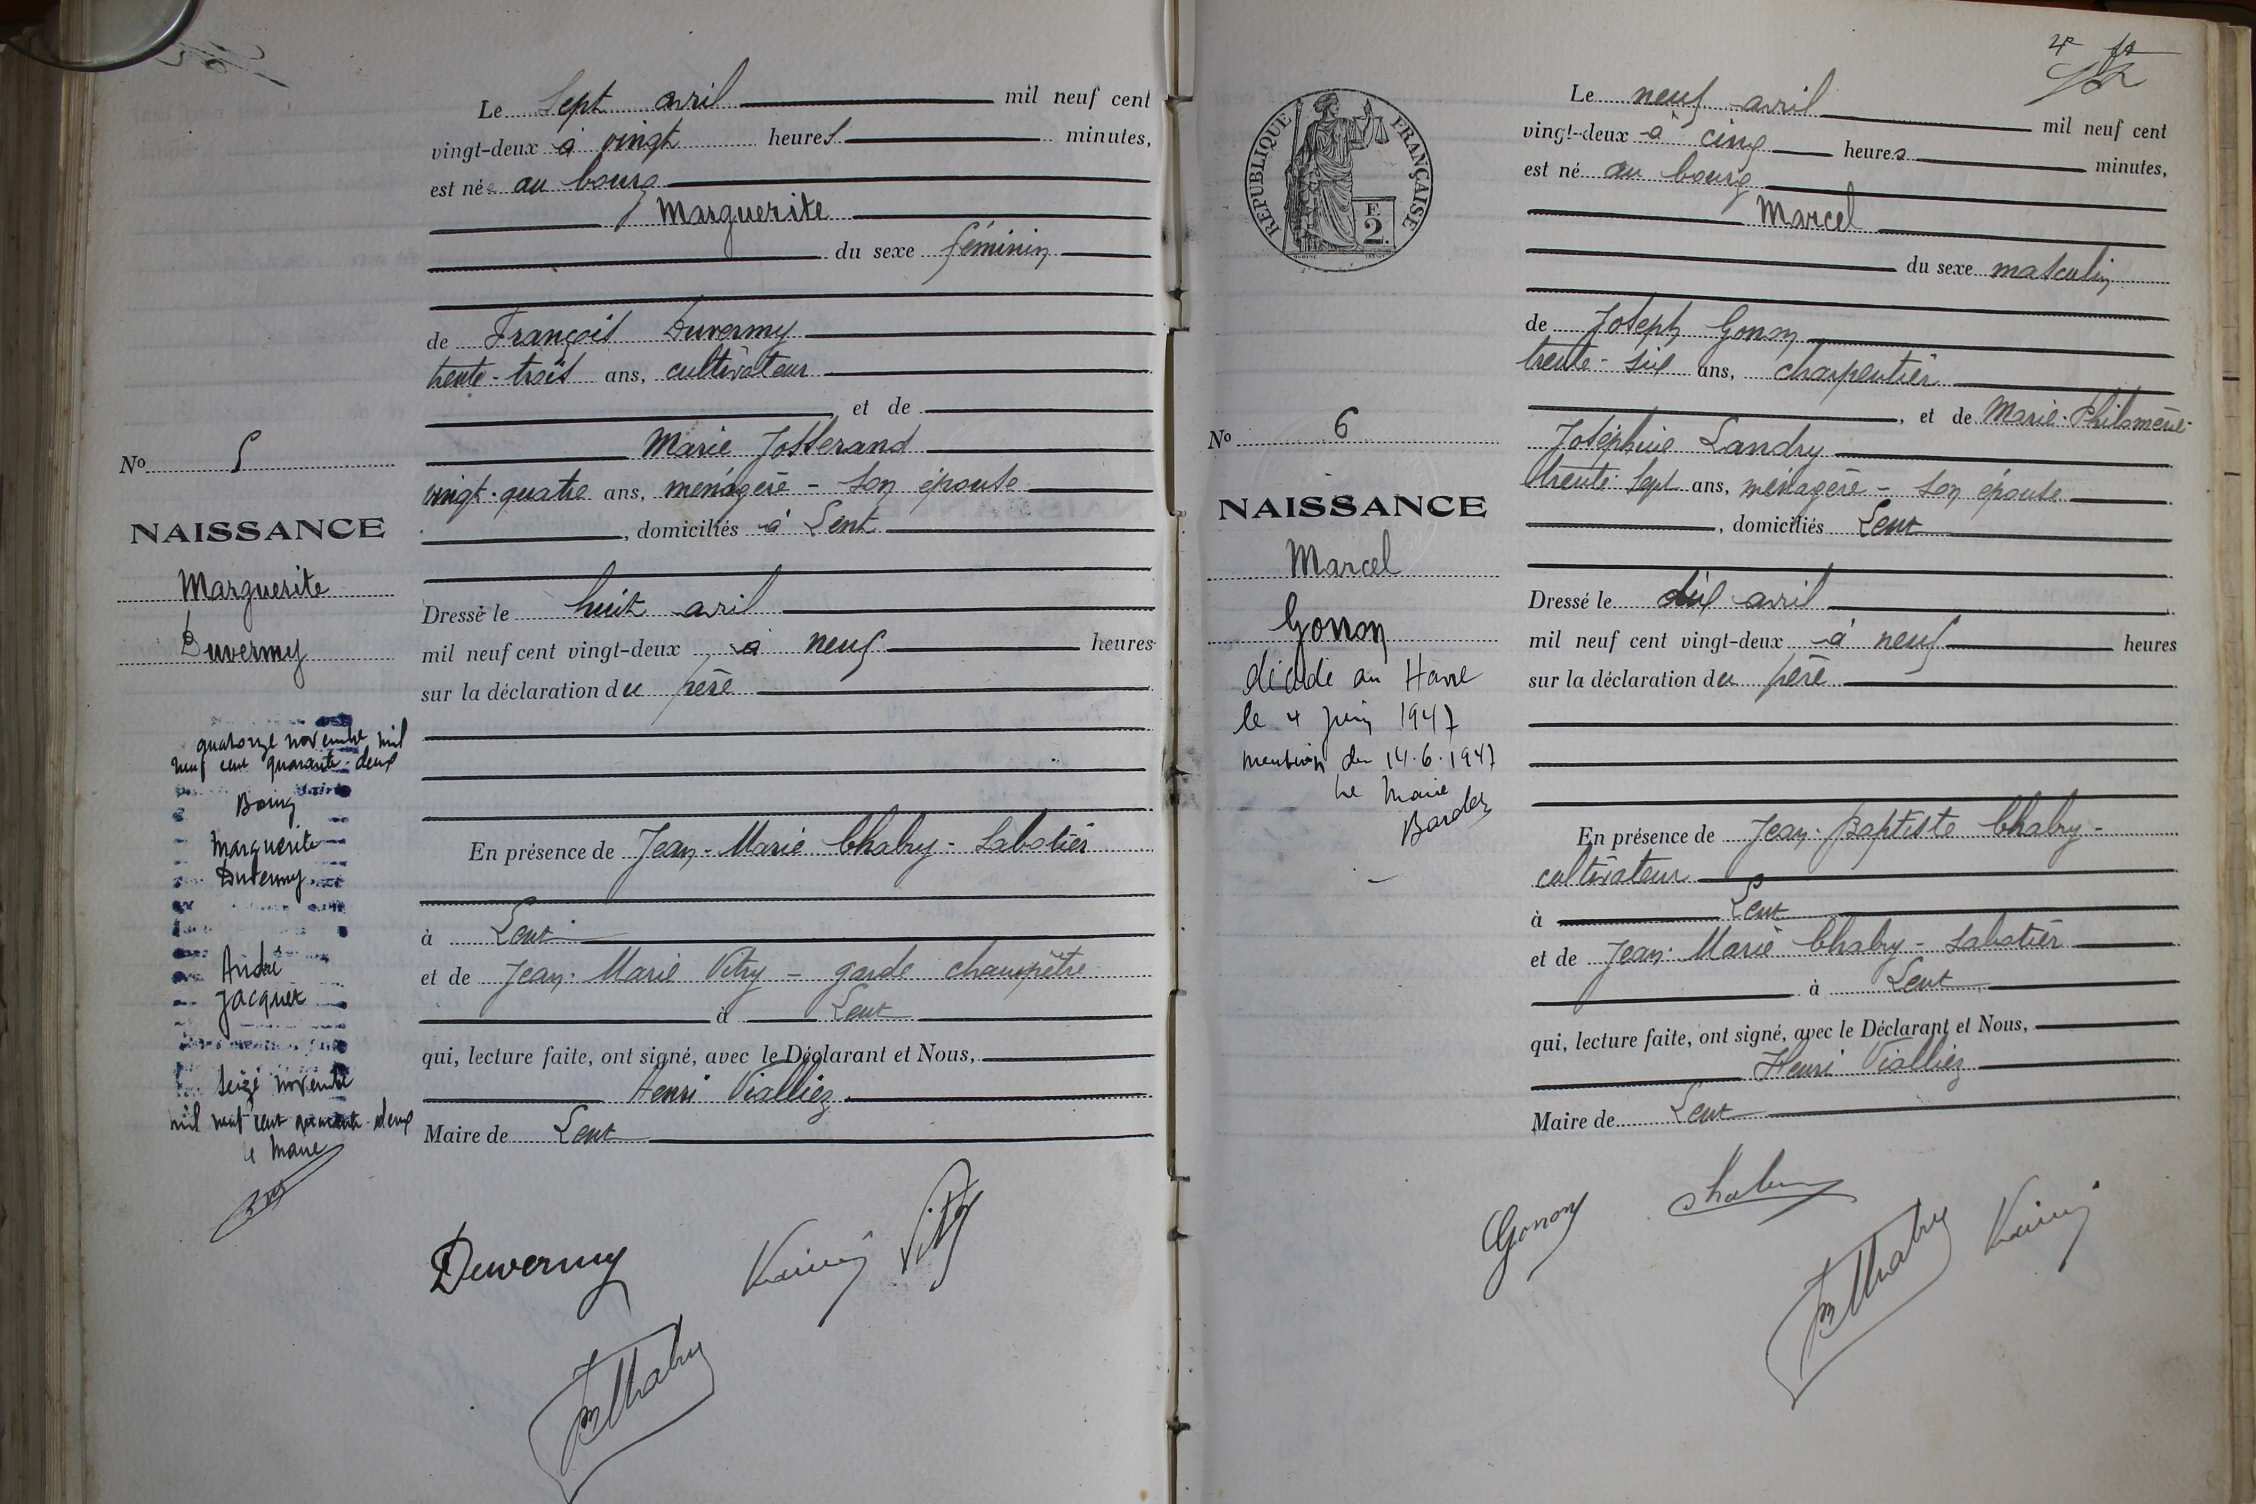 Le Sept avril mil neuf cent
vingt-deux à vingt heures minutes,
est née au bourg
Marguerite
du sexe féminin
de François Duvermy
trente-trois ans, cultivateur
et de
Marie Josserand
vingt-quatre ans, ménagère - son épouse
, domiciliés à Lent
Dressé le huit avril
mil neuf cent vingt-deux à neuf heures
sur la déclaration du père
En présence de Jean-Marie Chabry - Sabotier
à Lent
et de Jean-Marie Vitry - garde champêtre
à Lent
qui, lecture faite, ont signé, avec le Déclarant et Nous,
Henri Vialliez
Maire de Lent
No 5
NAISSANCE
Marguerite
Duvermy
quatorze novembre mil
neuf cent quarante-deux
Bourg
Marguerite
Duvermy
André
Jacquet
Seize novembre
mil neuf cent quarante-deux
le Maire
Duvermy
Vitry
JM Chabry
RÉPUBLIQUE FRANÇAISE
E
2.
Le neuf avril mil neuf cent
vingt-deux à cinq heures minutes,
est né au bourg
Marcel
du sexe masculin
de Joseph Gonon
trente-six ans, charpentier
, et de Marie-Philomène-
Joséphine Landry
trente-sept ans, ménagère - son épouse
, domiciliés Lent
Dressé le dix avril
mil neuf cent vingt-deux à neuf heures
sur la déclaration du père
En présence de Jean-Baptiste Chabry -
cultivateur
à Lent
et de Jean-Marie Chabry - Sabotier
à Lent
qui, lecture faite, ont signé, avec le Déclarant et Nous,
Henri Vialliez
Maire de Lent
No 6
NAISSANCE
Marcel
Gonon
décédé au Havre
le 4 juin 1947
mention du 14.6.1947
Le Maire
Gonon
Chabry
JM Chabry